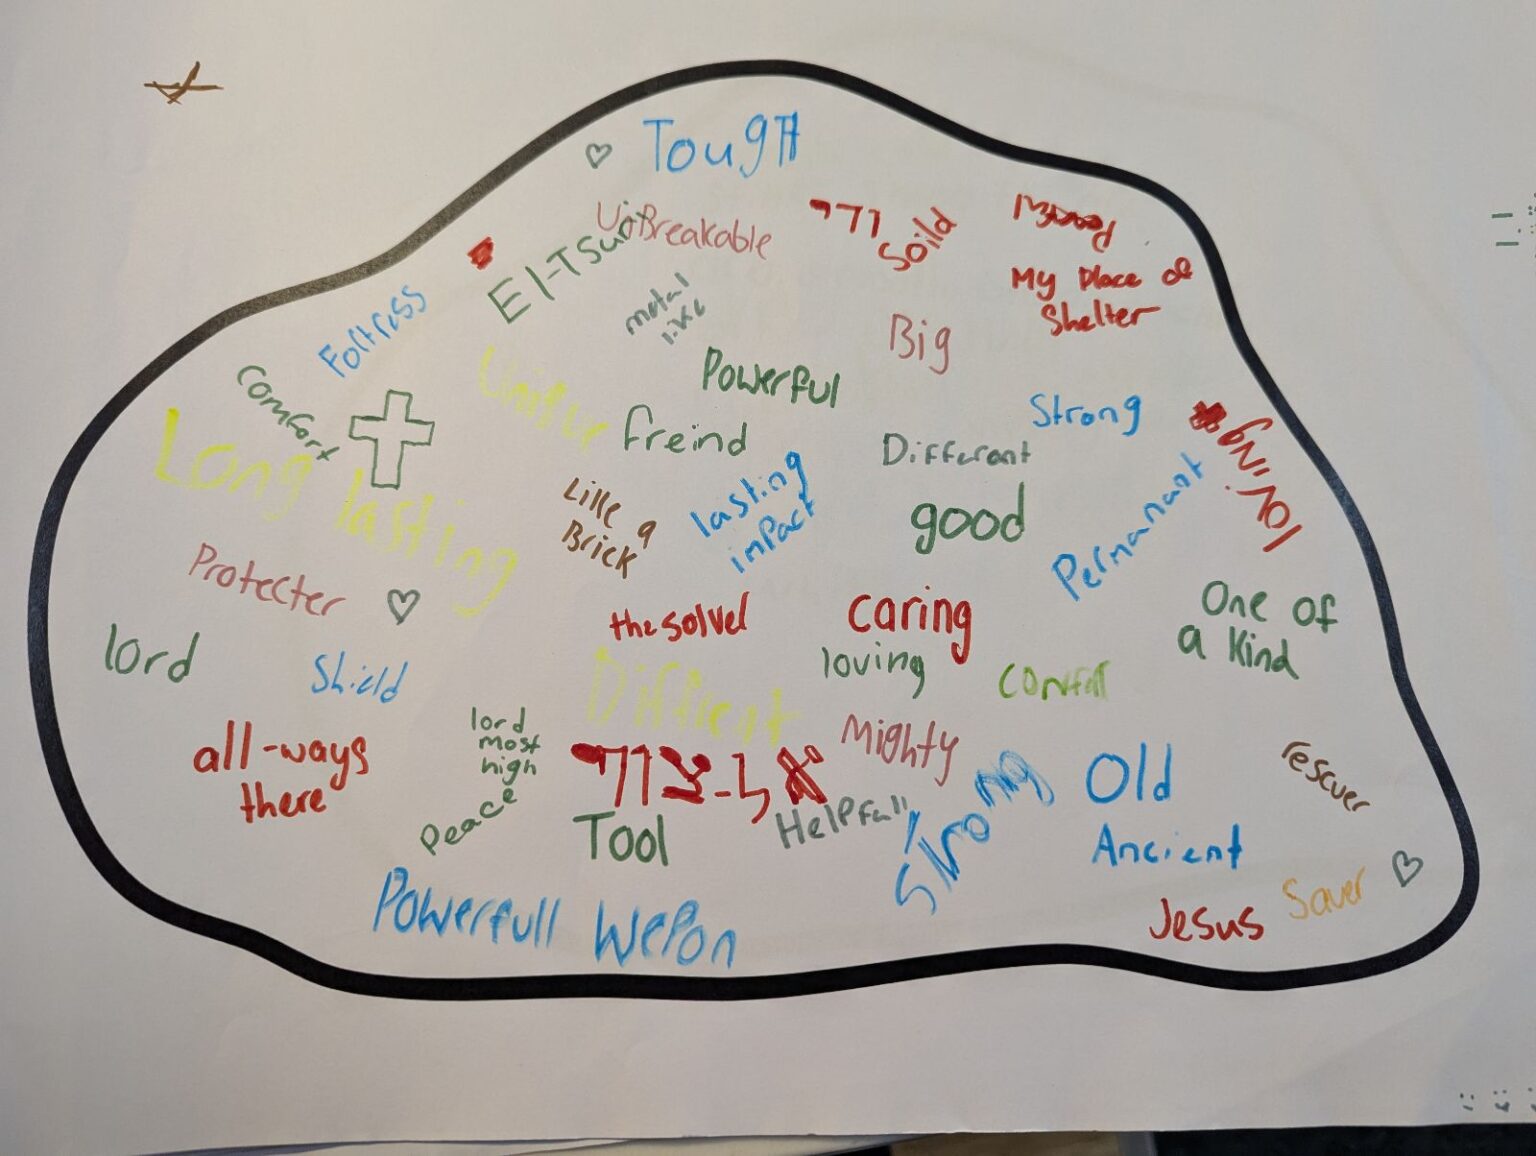 Tough
UnBreakable
Soild
El-Tsur
My Place of
Shelter
metal
like
Big
Powerful
Comfort
Strong
freind
Different
loving
Long lasting
Like a
Brick
lasting
impact
good
Permanant
Protecter
the solver
caring
One of
a Kind
lord
Shield
loving
Diffrent
all-ways
there
lord
most
high
Mighty
אל-צור
Peace
Tool
Helpfull
Strong
Old
rescuer
Ancient
Powerfull WePon
Jesus
Saver